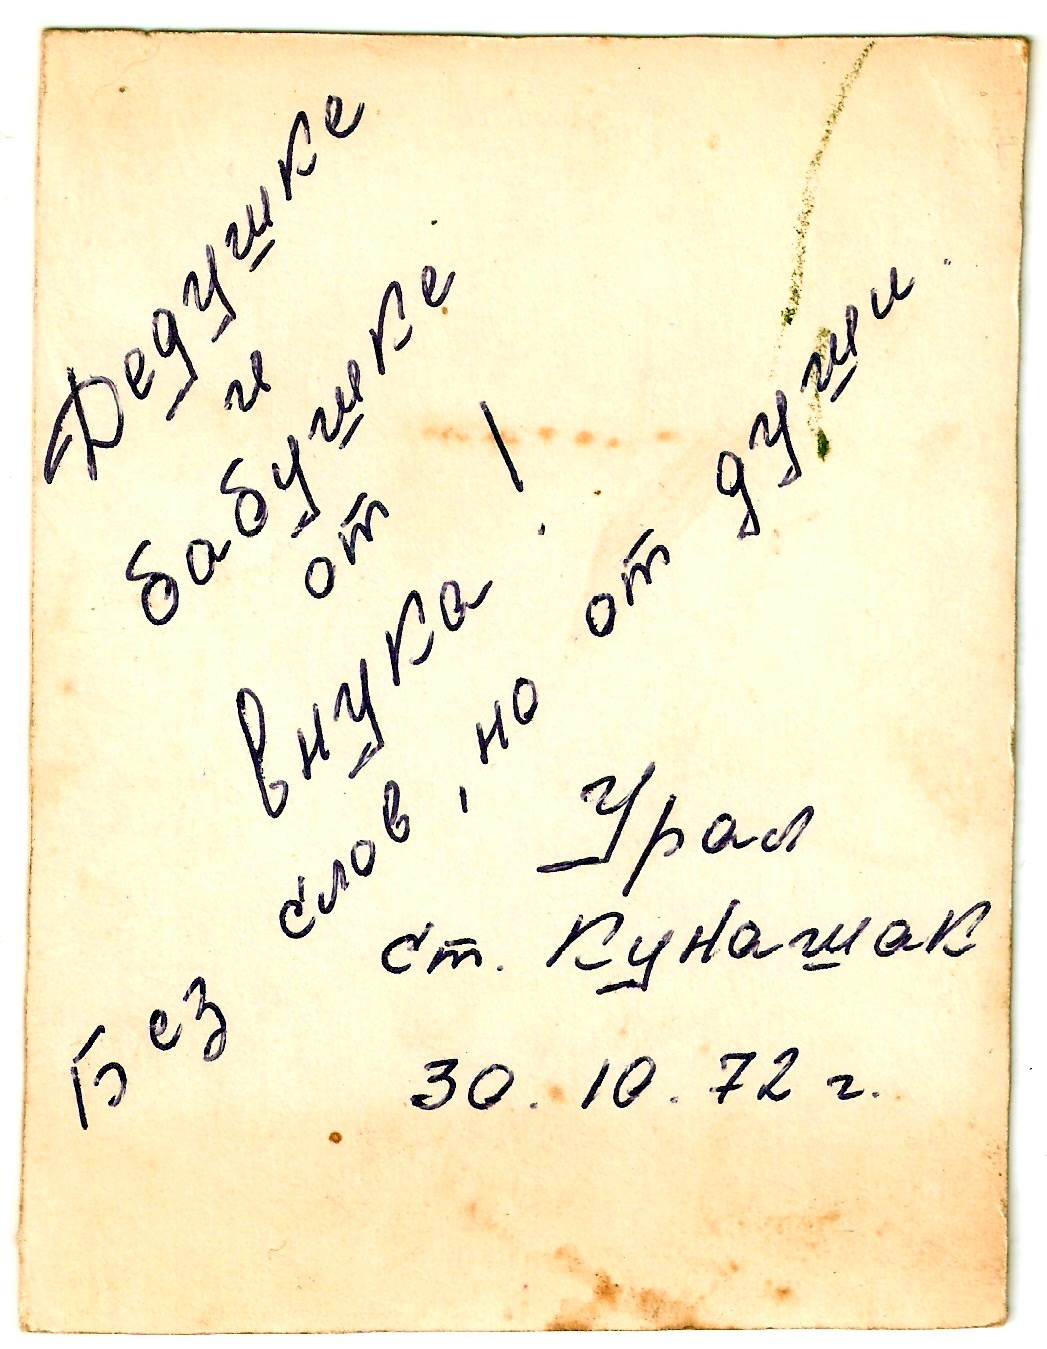 Дедушке
и
бабушке
от
внука!
Без слов, но от души.
Урал
ст. Кунашак
30.10.72 г.